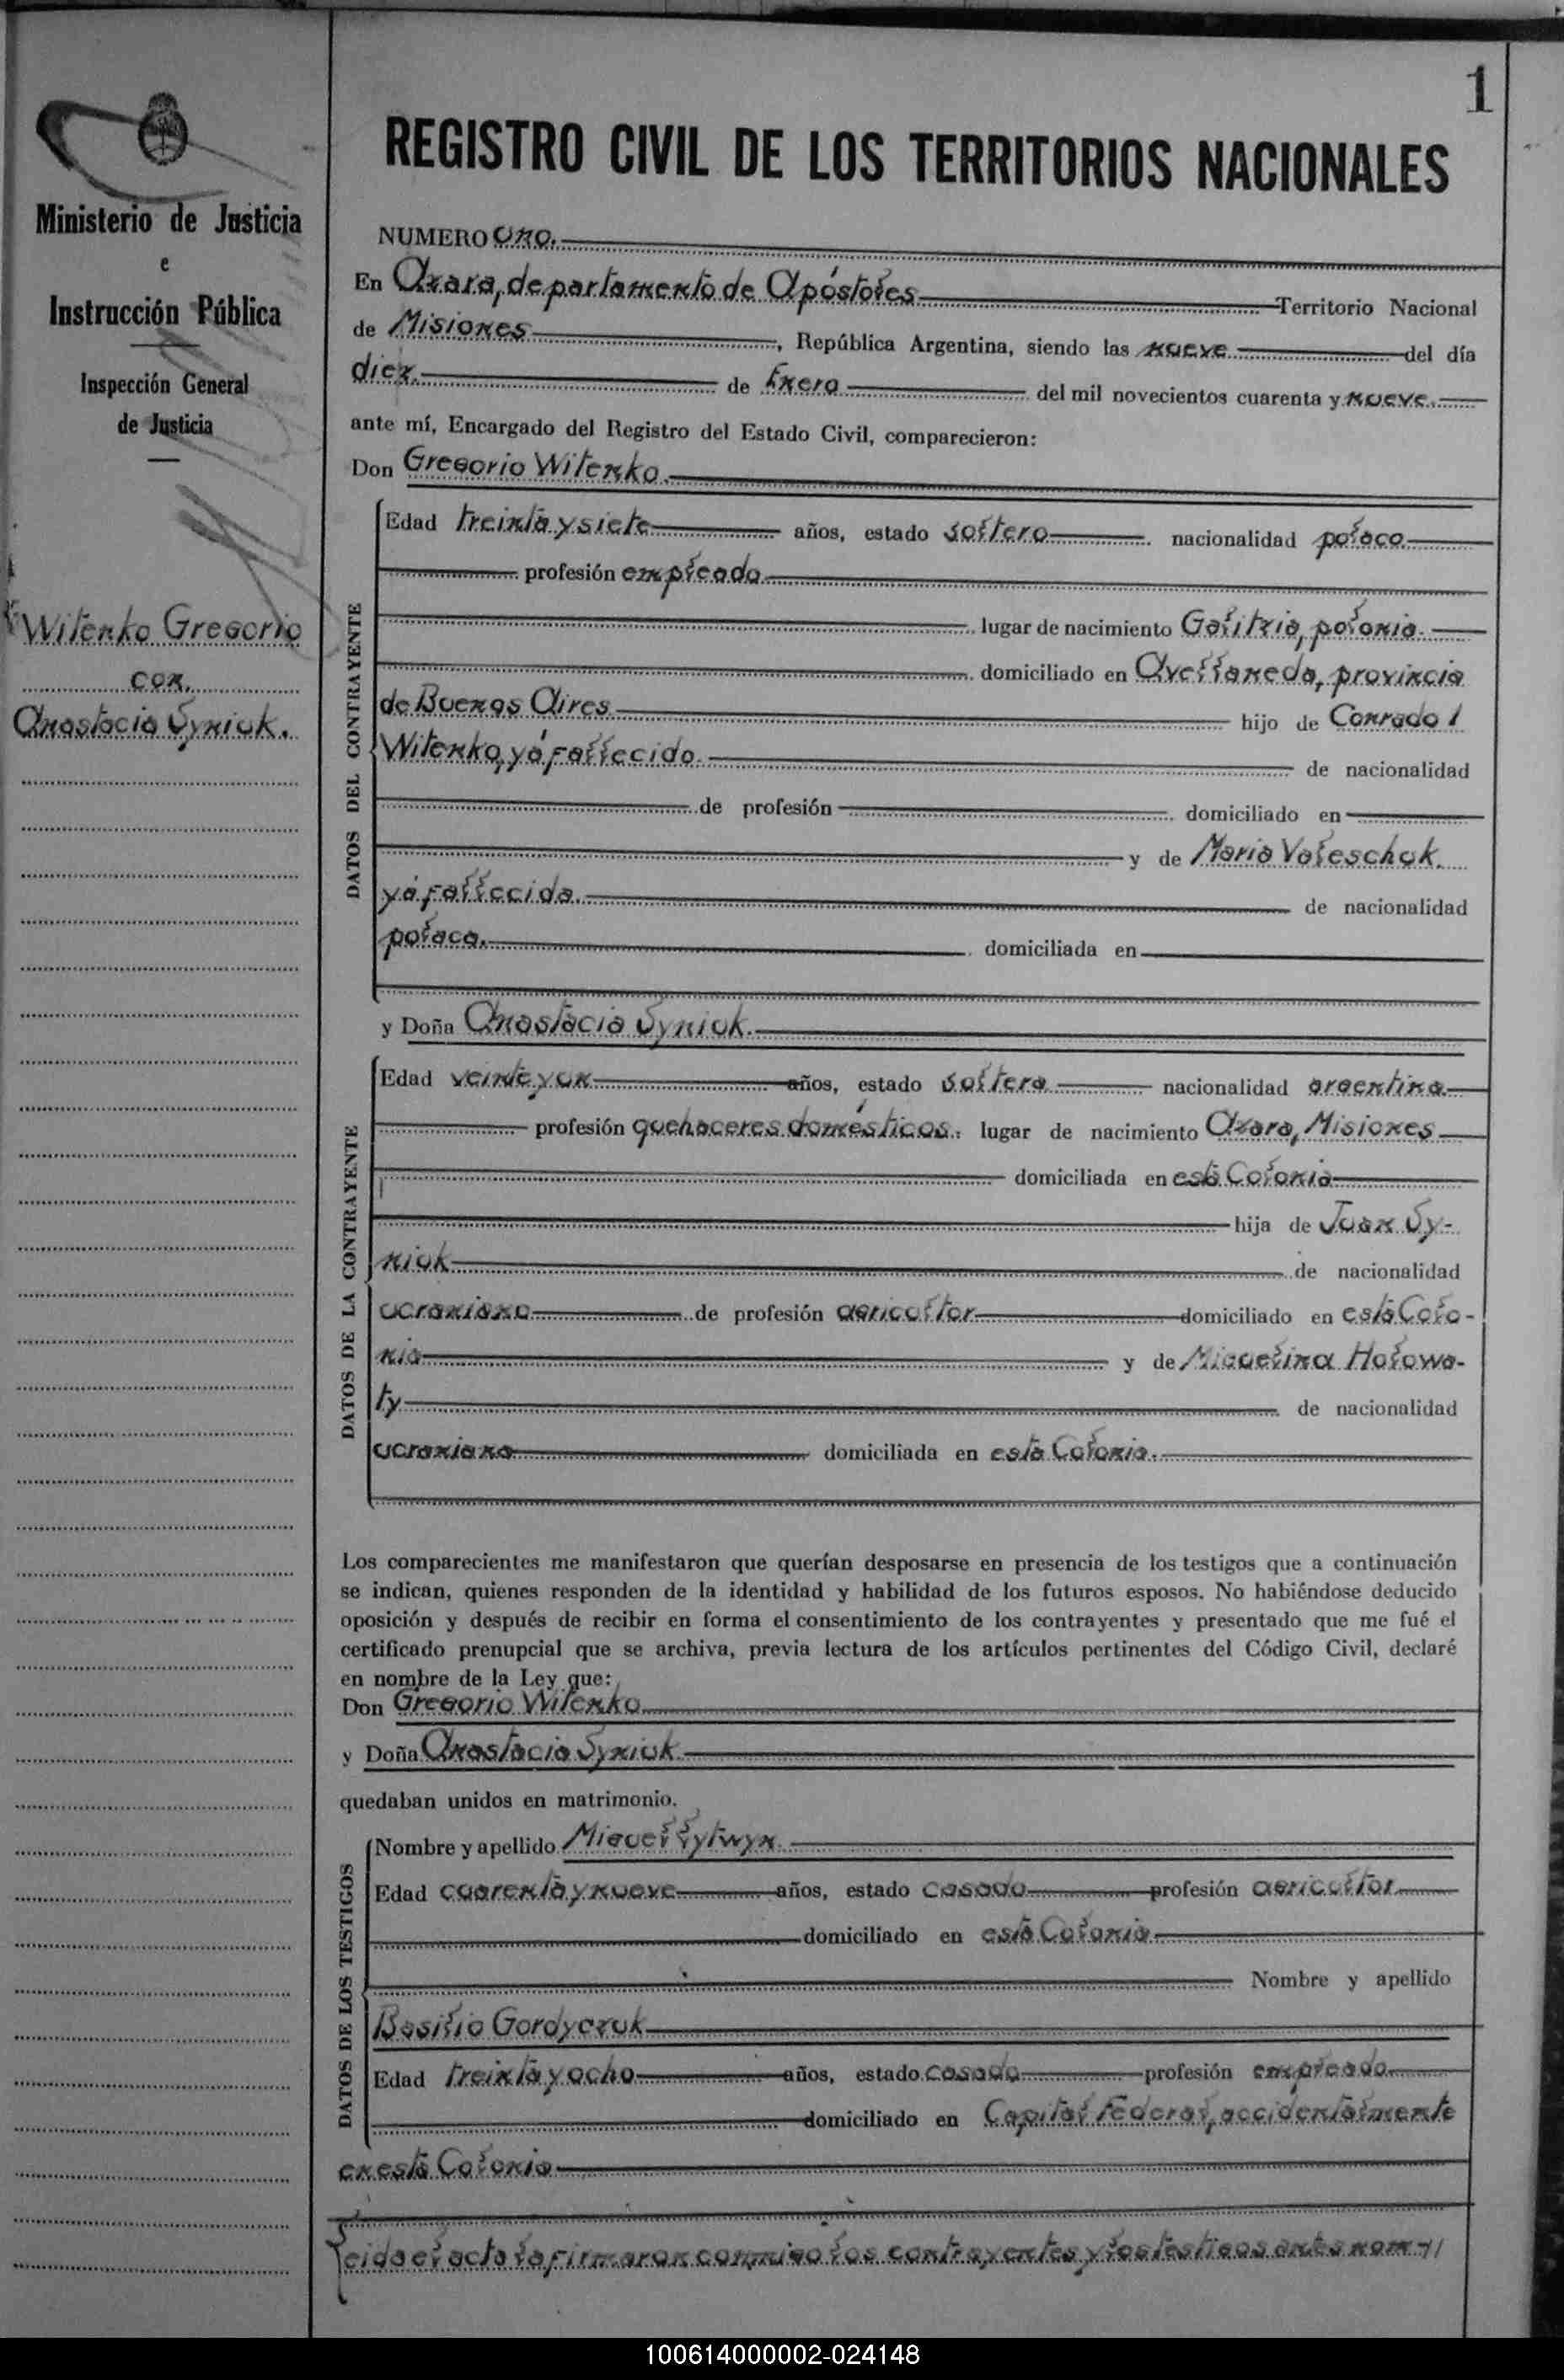 1
REGISTRO CIVIL DE LOS TERRITORIOS NACIONALES
Ministerio de Justicia
e
Instrucción Pública
Inspección General
de Justicia
Witenko Gregorio
con
Anastacia Syniuk.
NUMERO uno.
En Azara, departamento de Apóstoles Territorio Nacional
de Misiones, República Argentina, siendo las nueve del día
diez de Enero del mil novecientos cuarenta y nueve.
ante mí, Encargado del Registro del Estado Civil, comparecieron:
Don Gregorio Witenko.
DATOS DEL CONTRAYENTE
Edad treinta y siete años, estado soltero nacionalidad polaco
profesión empleado
lugar de nacimiento Galitzia, polonia.
domiciliado en Avellaneda, provincia
de Buenos Aires hijo de Conrado
Witenko, yá fallecido. de nacionalidad
de profesión domiciliado en
y de Maria Valeschuk.
yá fallecida. de nacionalidad
polaca. domiciliada en
y Doña Anastacia Syniuk.
DATOS DE LA CONTRAYENTE
Edad veinte y un años, estado soltera nacionalidad argentina
profesión quehaceres domésticos. lugar de nacimiento Azara, Misiones
domiciliada en esta Colonia
hija de Juan Sy-
niuk de nacionalidad
ucraniano de profesión agricultor domiciliado en esta Colo-
nia y de Miguelina Holowa-
ty de nacionalidad
ucraniana domiciliada en esta Colonia.
Los comparecientes me manifestaron que querían desposarse en presencia de los testigos que a continuación
se indican, quienes responden de la identidad y habilidad de los futuros esposos. No habiéndose deducido
oposición y después de recibir en forma el consentimiento de los contrayentes y presentado que me fué el
certificado prenupcial que se archiva, previa lectura de los artículos pertinentes del Código Civil, declaré
en nombre de la Ley que:
Don Gregorio Witenko
y Doña Anastacia Syniuk
quedaban unidos en matrimonio.
DATOS DE LOS TESTIGOS
Nombre y apellido Miguel Lytwyn.
Edad cuarenta y nueve años, estado casado profesión agricultor
domiciliado en esta Colonia
Nombre y apellido
Basilio Gordyczuk
Edad treinta y ocho años, estado casado profesión empleado
domiciliado en Capital Federal, accidentalmente
en esta Colonia
Leida el acta la firmaron conmigo los contrayentes y los testigos antes nom-
100614000002-024148